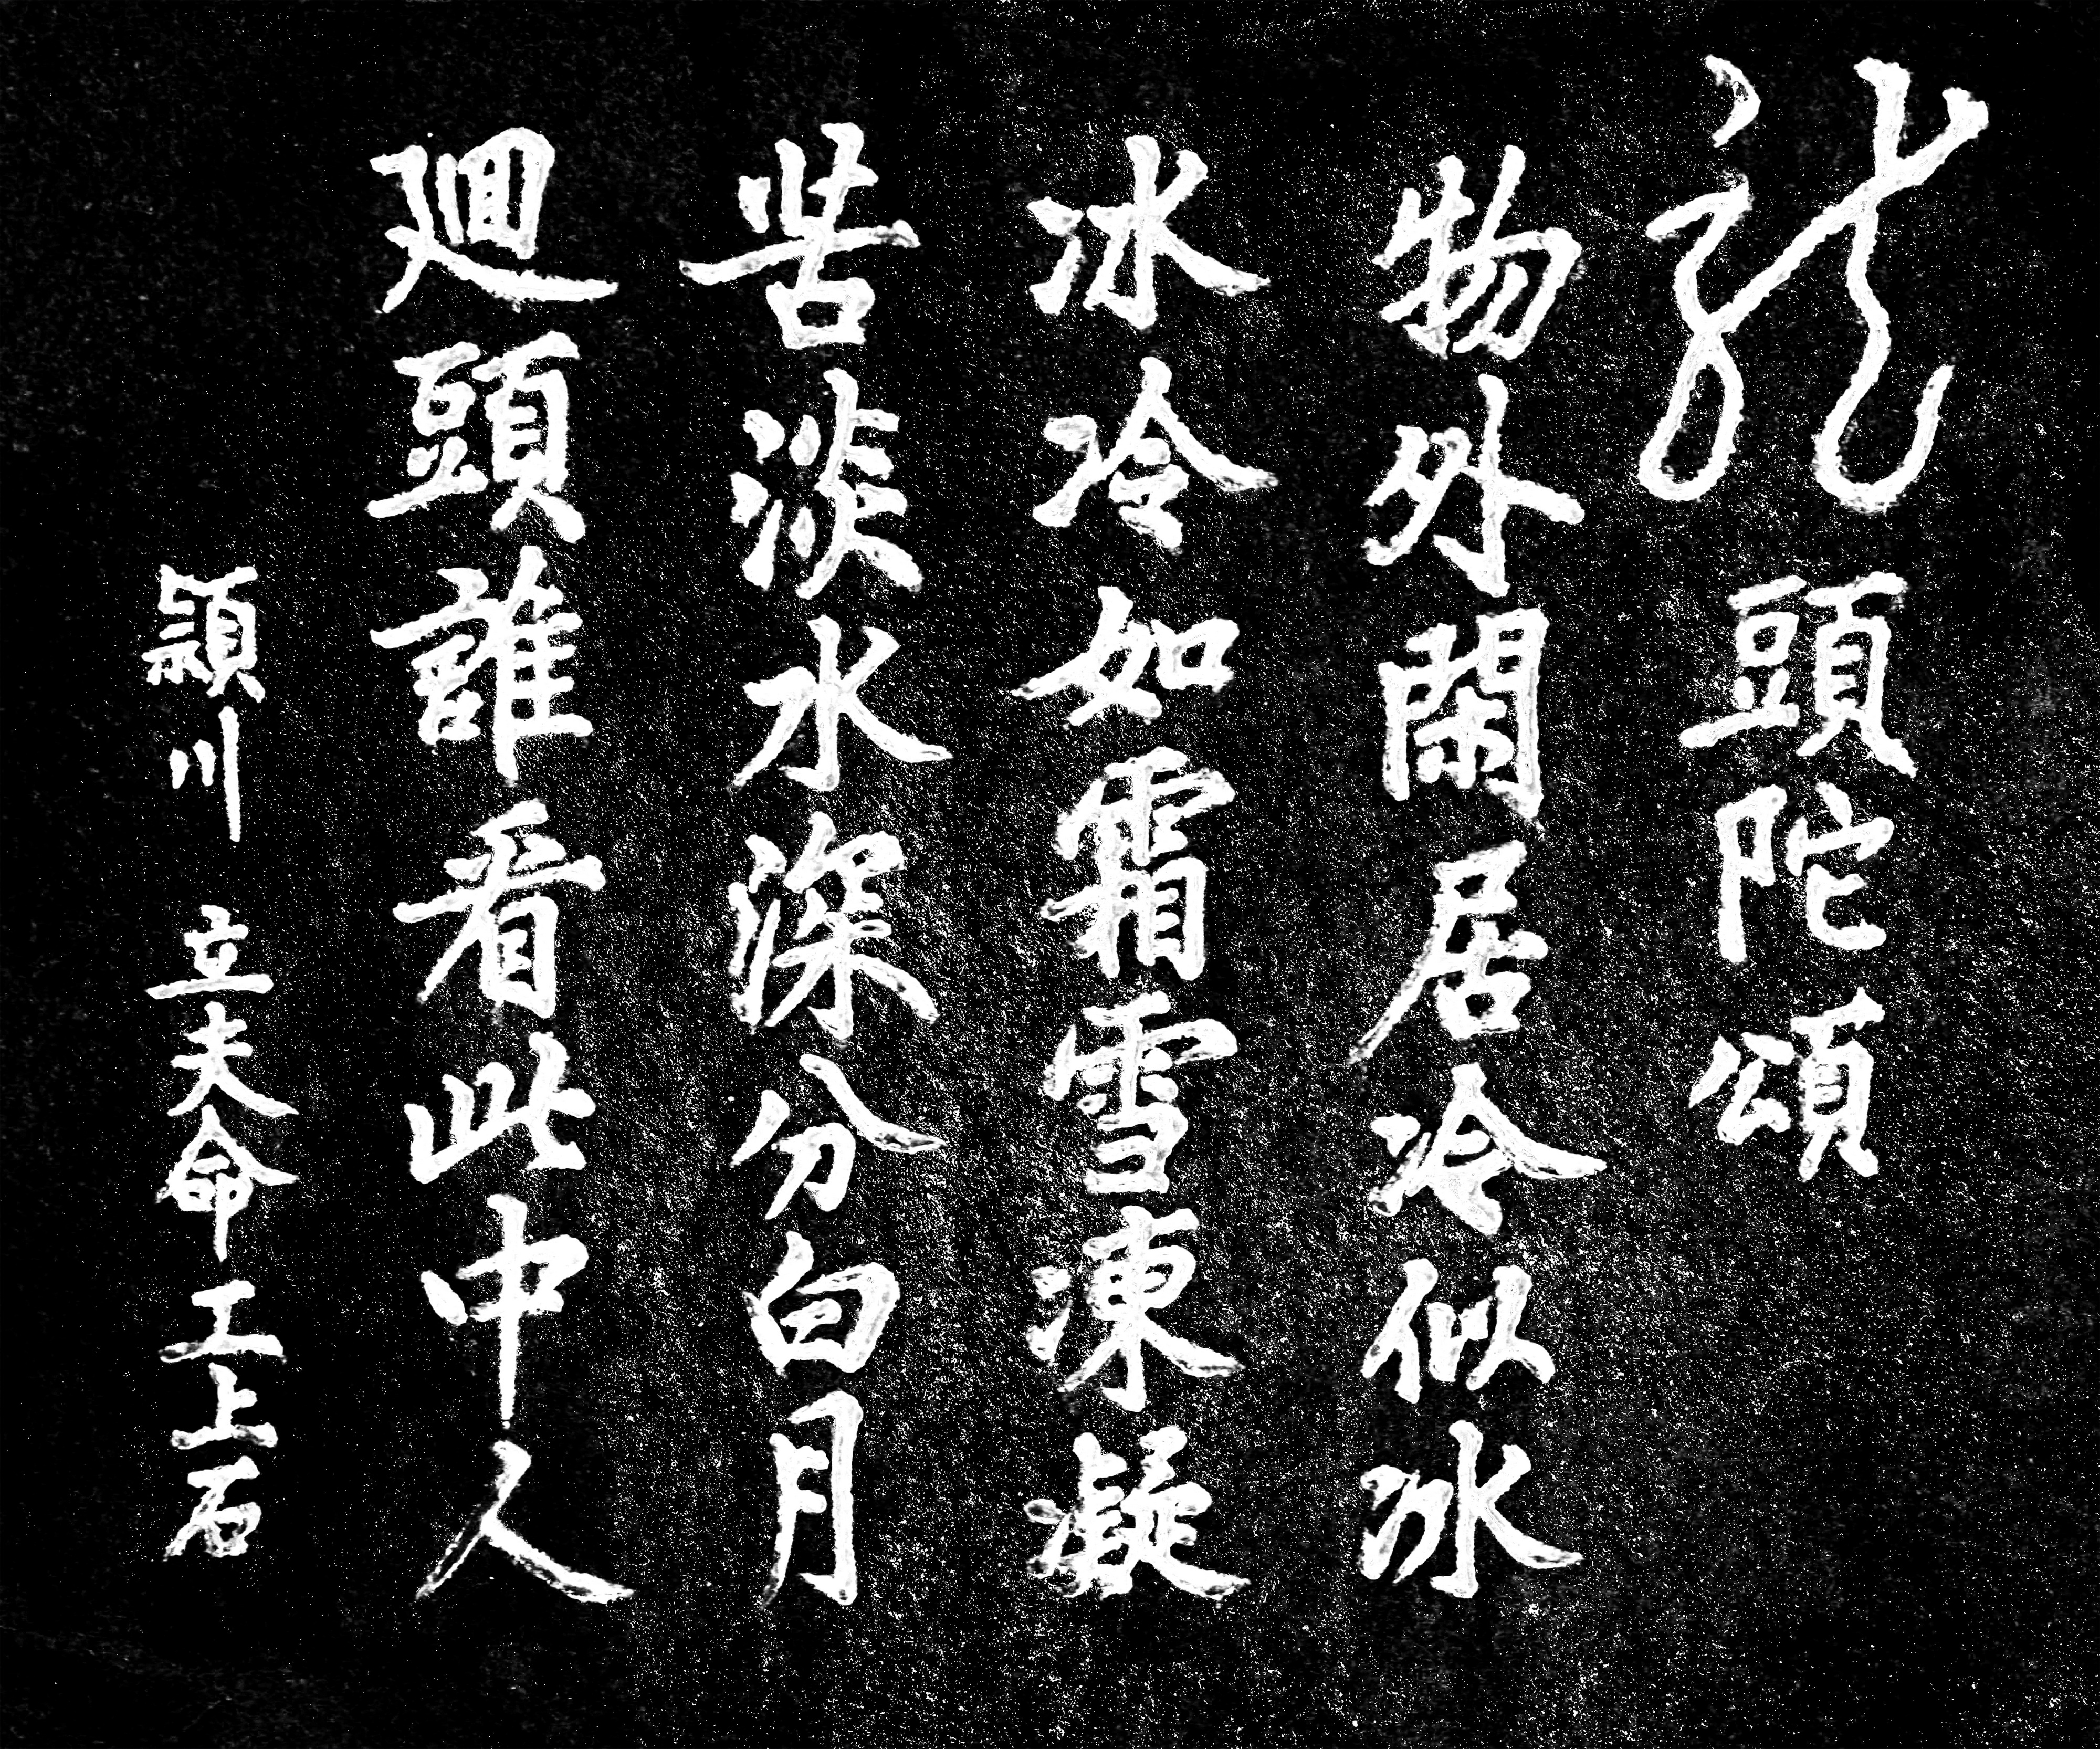 龍頭陀頌
物外閑居冷似冰
冰冷如霜雪凍凝
苦淡水深分白月
廻頭誰看此中人
頴川 立夫命工上石